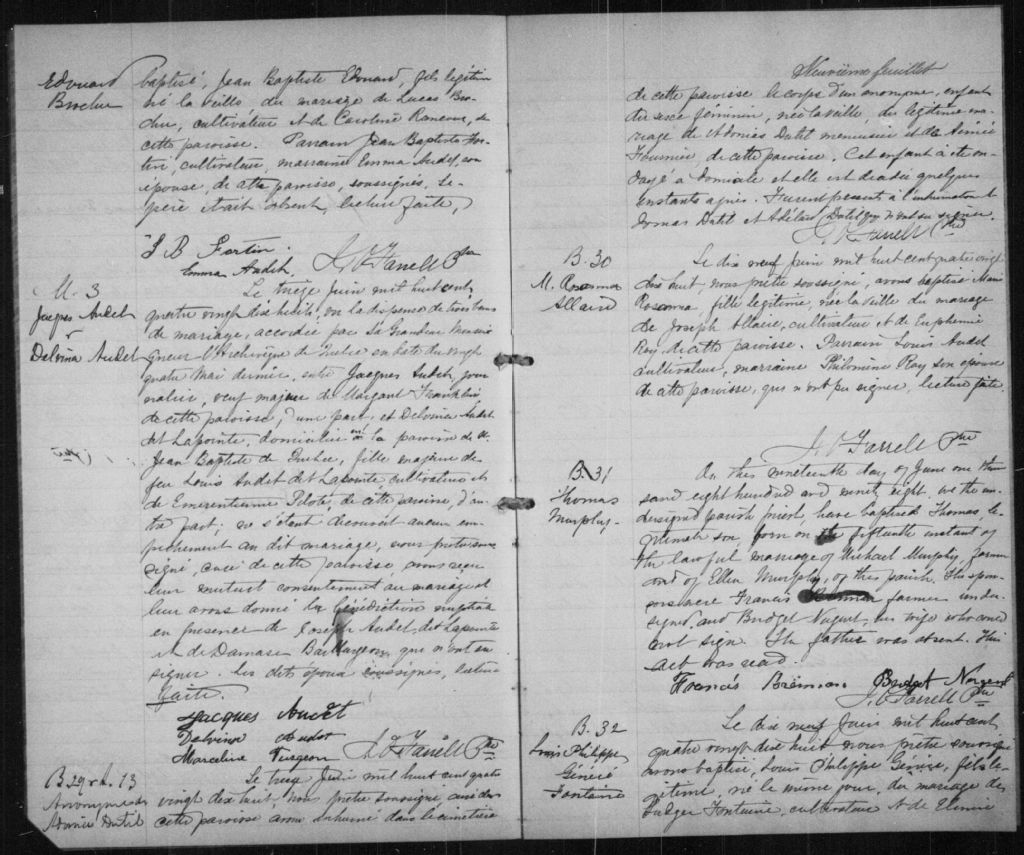 Edouard
Brochu
baptisé, Jean Baptiste Edouard, fils légitime
né la veille du mariage de Lucas Bro-
chu, cultivateur et de Caroline de
cette paroisse. Parrain Jean Baptiste For-
tin, cultivateur, marraine Emma Audet, son
épouse, de cette paroisse, soussignés. Le
père était absent, lecture faite,
J B Fortin.
Emma Audet. J. O'Farrell Ptre
M. 3
Jacques Audet
+
Delvina Audet
Le treize Juin mil huit cent
quatre vingt dix huit, vu la dispense de trois bans
de mariage, accordée par Sa Grandeur Monsei
gneur l'Archevêque de Québec en date du vingt
quatre Mai dernier, entre Jacques Audet, jour
nalier, veuf majeur de Margaret Franklin
de cette paroisse, d'une part, et Delvina Audet
dit Lapointe, domiciliée en la paroisse de St
Jean Baptiste de Québec, fille majeure de
feu Louis Audet dit Lapointe, cultivateur et
de Emerentienne Pilote, de cette paroisse, d'au
tre part; ne s'étant découvert aucun em-
pêchement au dit mariage, nous prêtre sous
signé, curé de cette paroisse avons reçu
leur mutuel consentement au mariage et
leur avons donné la bénédiction nuptiale
en présence de Joseph Audet dit Lapointe
et de Damase Baillargeon, qui n'ont su
signer. Les dits époux soussignés, lecture
faite.
Jacques Audet
Delvina Audet
Marceline Turgeon J. O'Farrell Ptre
B. 29 & S. 13
Anonyme de
Dutil
Le treize Juin mil huit cent quatre
vingt dix huit, nous prêtre soussigné, curé de
cette paroisse avons inhumé dans le cimetière
Neuvième feuillet
de cette paroisse le corps d'un anonyme, enfant
du sexe féminin, née la veille, du légitime ma-
riage de Dutil menuisier et de
Fournier, de cette paroisse. Cet enfant a été on-
doyé à domicile et elle est décédée quelques
instants après. Furent présents à l'inhumation
Dutil et Adélard Dutil qui n'ont su signer.
J. O'Farrell Ptre
B. 30
M. Rosanna
Allaire
Le dix neuf Juin mil huit cent quatre vingt
dix huit, nous prêtre soussigné, avons baptisé Marie
Rosanna, fille légitime, née la veille du mariage
de Joseph Allaire, cultivateur et de Euphémie
Roy, de cette paroisse. Parrain Louis Audet
cultivateur, marraine Philomène Roy son épouse
de cette paroisse, qui n'ont pu signer, lecture faite.
J. O'Farrell Ptre
B. 31
Thomas
Murphy.
On this nineteenth day of June one thou
sand eight hundred and ninety eight, we the un-
dersigned parish priest, have baptised Thomas, le-
gitimate son, born on the fifteenth instant of
the lawful marriage of Michael Murphy, farmer
and of Ellen Murphy, of this parish. The spon-
sors were Francis Brennan farmer under-
signed, and Bridget Nugent, his wife who could
not sign. The father was absent. This
act was read.
Francis Brennan Bridget Nugent
J. O'Farrell Ptre
B. 32
Louis Philippe
Généré
Fontaine
Le dix neuf Juin mil huit cent
quatre vingt dix huit nous prêtre soussigné
avons baptisé, Louis Philippe Génére, fils lé-
gitime, né le même jour, du mariage de
Fontaine, cultivateur et de